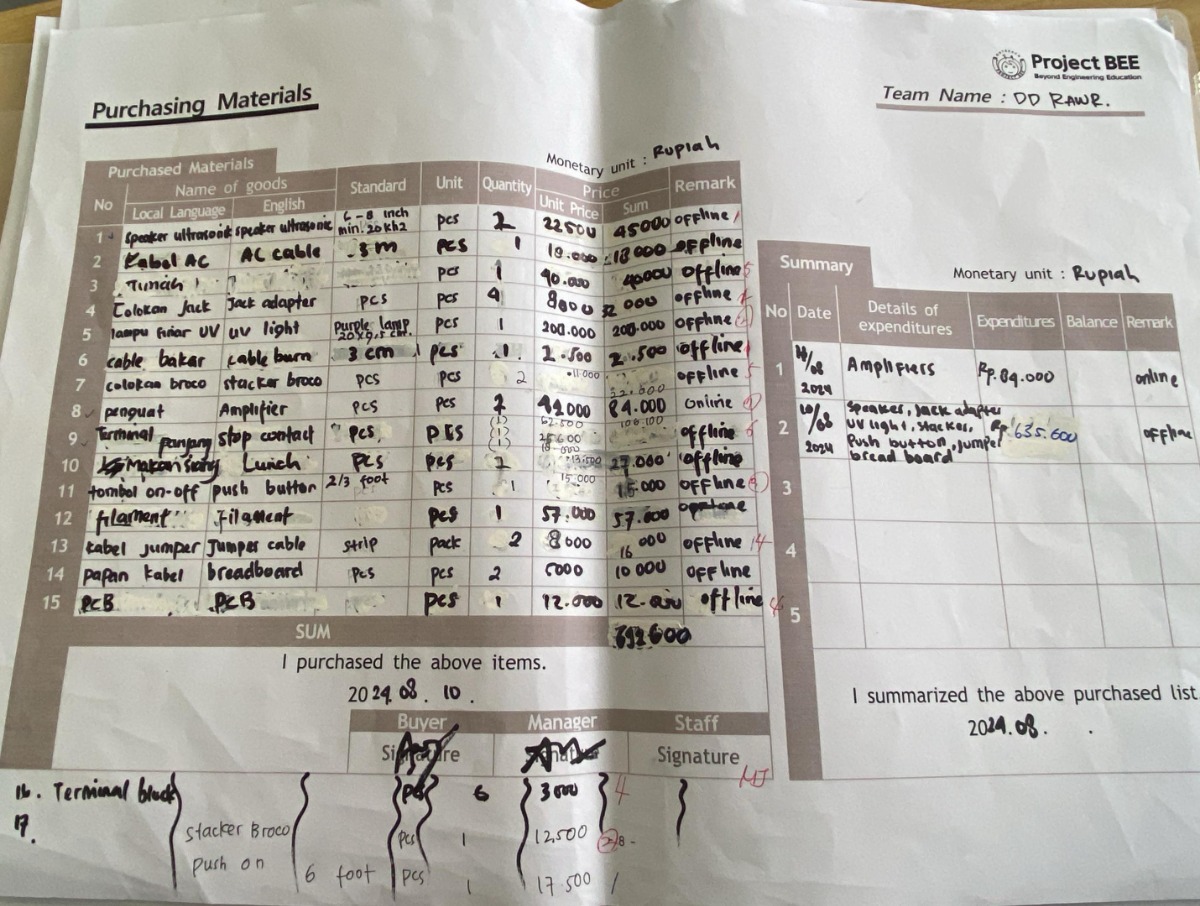 Project BEE
Beyond Engineering Education
Purchasing Materials
Team Name : DD RAWR.
Purchased Materials
Monetary unit : Rupiah
No Name of goods Standard Unit Quantity Price Remark
Local Language English Unit Price Sum
1 speaker ultrasonik speaker ultrasonic 6-8 inch min. 20 khz pcs 2 22500 45000 offline
2 Kabel AC AC cable 3 m pcs 1 18.000 18000 offline
3 pcs 1 40.000 40000 offline 5
4 Colokan Jack Jack adapter pcs pcs 4 8000 32 000 offline
5 lampu sinar UV uv light purple lamp pcs 1 200.000 200.000 offline
6 cable bakar cable burn 3 cm pcs 1 2.500 2.500 offline
7 colokan broco stacker broco pcs pcs 2 11.000 offline 5
8 penguat Amplifier pcs pcs 2 42000 84.000 online
9 Terminal panjang stop contact pcs pcs offline 6
10 Makan siang Lunch pcs pcs 2 13.500 27.000 offline
11 tombol on-off push button 2/3 foot pcs 1 15.000 15.000 offline
12 filament Filament pcs 1 57.000 57.000 offline
13 kabel jumper Jumper cable strip pack 2 8000 16 000 offline 4
14 papan kabel breadboard pcs pcs 2 5000 10 000 offline
15 PCB PCB pcs 1 12.000 12.000 offline 4
SUM
I purchased the above items.
2024. 08 . 10 .
Buyer Manager Staff
Signature Signature
16. Terminal block pcs 6 3000 4
17. Stacker Broco pcs 1 12,500
Push on 6 foot pcs 1 17 500
Summary
Monetary unit : Rupiah
No Date Details of expenditures Expenditures Balance Remark
1 2024 Amplifiers Rp. 84.000 online
2 10/08 2024 Speaker, jack adapter
UV light, stacker, Rp. 635.600 offline
Push button, jumper
bread board
3
4
5
I summarized the above purchased list
2024. 08. .